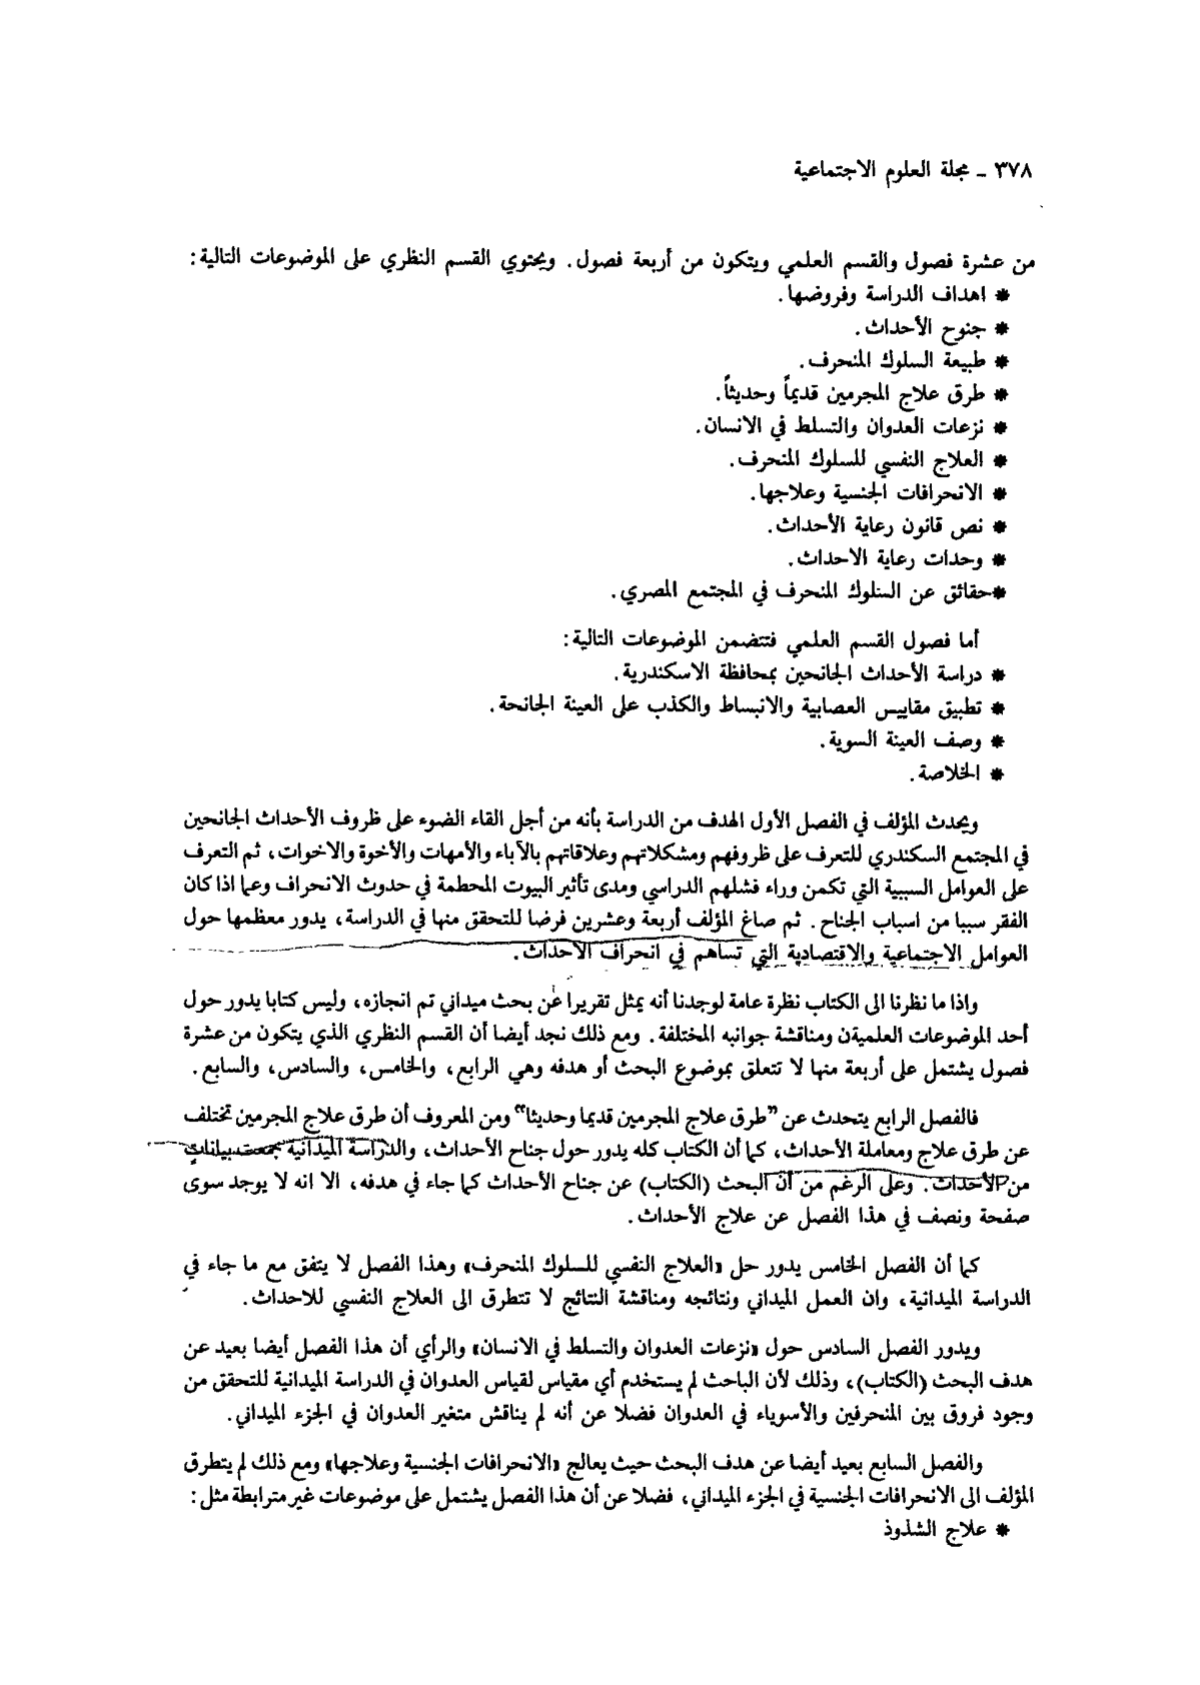 ٣٧٨ - مجلة العلوم الاجتماعية
من عشرة فصول والقسم العلمي ويتكون من أربعة فصول. ويحتوي القسم النظري على الموضوعات التالية:
* اهداف الدراسة وفروضها.
* جنوح الأحداث.
* طبيعة السلوك المنحرف.
* طرق علاج المجرمين قديماً وحديثاً.
* نزعات العدوان والتسلط في الانسان.
* العلاج النفسي للسلوك المنحرف.
* الانحرافات الجنسية وعلاجها.
* نص قانون رعاية الأحداث.
* وحدات رعاية الاحداث.
*حقائق عن السلوك المنحرف في المجتمع المصري.
أما فصول القسم العلمي فتتضمن الموضوعات التالية:
* دراسة الأحداث الجانحين بمحافظة الاسكندرية.
* تطبيق مقاييس العصابية والانبساط والكذب على العينة الجانحة.
* وصف العينة السوية.
* الخلاصة.
ويحدث المؤلف في الفصل الأول الهدف من الدراسة بأنه من أجل القاء الضوء على ظروف الأحداث الجانحين
في المجتمع السكندري للتعرف على ظروفهم ومشكلاتهم وعلاقاتهم بالآباء والأمهات والأخوة والاخوات، ثم التعرف
على العوامل السببية التي تكمن وراء فشلهم الدراسي ومدى تأثير البيوت المحطمة في حدوث الانحراف وعما اذا كان
الفقر سببا من اسباب الجناح. ثم صاغ المؤلف أربعة وعشرين فرضا للتحقق منها في الدراسة، يدور معظمها حول
العوامل الاجتماعية والاقتصادية التي تساهم في انحراف الأحداث.
واذا ما نظرنا الى الكتاب نظرة عامة لوجدنا أنه يمثل تقريرا عن بحث ميداني تم انجازه، وليس كتابا يدور حول
أحد الموضوعات العلميةن ومناقشة جوانبه المختلفة. ومع ذلك نجد أيضا أن القسم النظري الذي يتكون من عشرة
فصول يشتمل على أربعة منها لا تتعلق بموضوع البحث أو هدفه وهي الرابع، والخامس، والسادس، والسابع.
فالفصل الرابع يتحدث عن "طرق علاج المجرمين قديما وحديثا" ومن المعروف أن طرق علاج المجرمين تختلف
عن طرق علاج ومعاملة الأحداث، كما أن الكتاب كله يدور حول جناح الأحداث، والدراسة الميدانية جمعت بيانات
من الأحداث. وعلى الرغم من أن البحث (الكتاب) عن جناح الأحداث كما جاء في هدفه، الا انه لا يوجد سوى
صفحة ونصف في هذا الفصل عن علاج الأحداث.
كما أن الفصل الخامس يدور حل «العلاج النفسي للسلوك المنحرف» وهذا الفصل لا يتفق مع ما جاء في
الدراسة الميدانية، وان العمل الميداني ونتائجه ومناقشة النتائج لا تتطرق الى العلاج النفسي للاحداث.
ويدور الفصل السادس حول «نزعات العدوان والتسلط في الانسان» والرأي أن هذا الفصل أيضا بعيد عن
هدف البحث (الكتاب)، وذلك لأن الباحث لم يستخدم أي مقياس لقياس العدوان في الدراسة الميدانية للتحقق من
وجود فروق بين المنحرفين والأسوياء في العدوان فضلا عن أنه لم يناقش متغير العدوان في الجزء الميداني.
والفصل السابع بعيد أيضا عن هدف البحث حيث يعالج «الانحرافات الجنسية وعلاجها» ومع ذلك لم يتطرق
المؤلف الى الانحرافات الجنسية في الجزء الميداني، فضلا عن أن هذا الفصل يشتمل على موضوعات غير مترابطة مثل:
* علاج الشذوذ